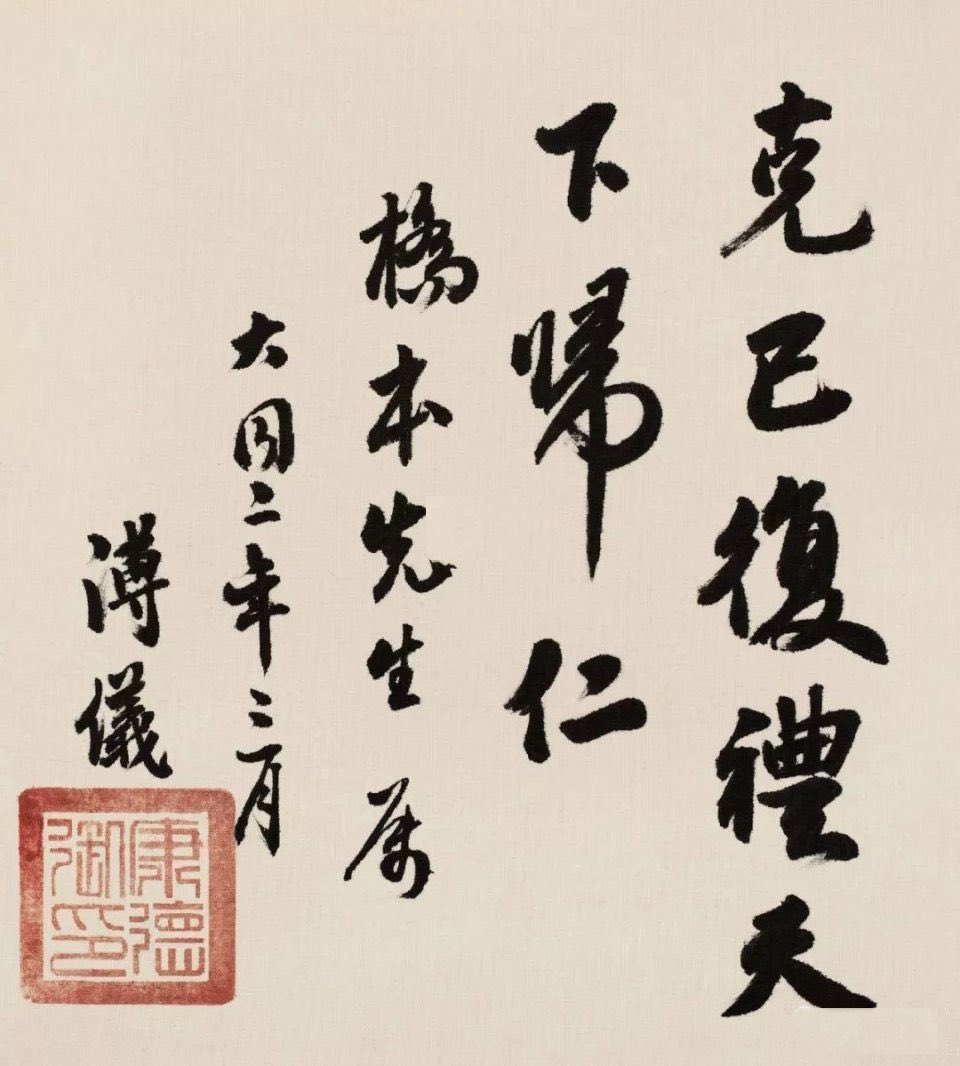 克己復禮天
下歸仁
橋本先生属
大同二年三月
溥儀
康德御印